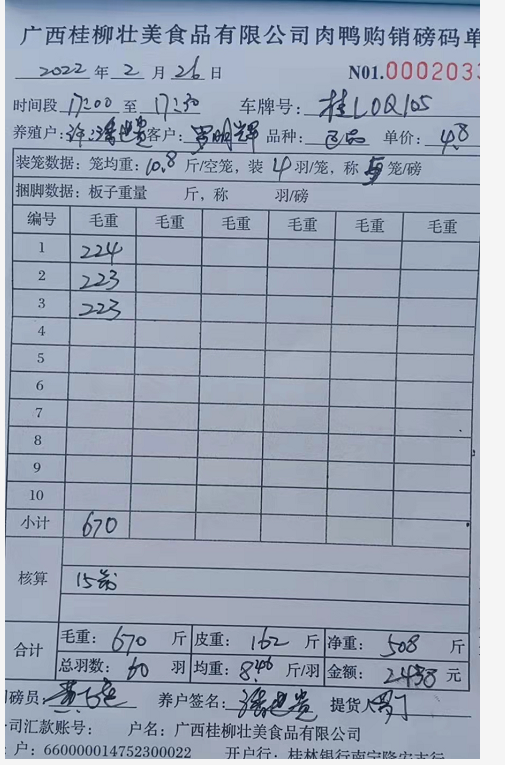 广西桂柳壮美食品有限公司肉鸭购销磅码单
2022 年 2 月 26 日 N01.0002033
时间段 17:00 至 17:30 车牌号: 桂L0Q105
养殖户: 客户: 罗明辉 品种: 单价: 4.8
装笼数据: 笼均重: 10.8 斤/空笼, 装 4 羽/笼, 称 5 笼/磅
捆脚数据: 板子重量 斤, 称 羽/磅
编号 毛重 毛重 毛重 毛重 毛重 毛重
1 224
2 223
3 223
4
5
6
7
8
9
10
小计 670
核算 15笼
合计 毛重: 670 斤 皮重: 162 斤 净重: 508 斤
总羽数: 60 羽 均重: 8.46 斤/羽 金额: 2438 元
磅员: 养户签名: 提货人
司汇款账号: 户名: 广西桂柳壮美食品有限公司
户: 660000014752300022 开户行: 桂林银行南宁隆安支行